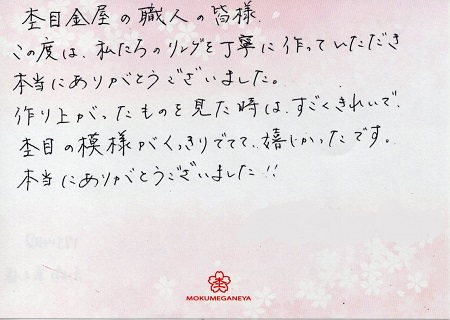 杢目金屋の職人の皆様.
この度は、私たちのリングを丁寧に作っていただき
本当にありがとうございました。
作り上がったものを見た時は、すごくきれいで、
杢目の模様がくっきりでてて、嬉しかったです。
本当にありがとうございました!!
MOKUMEGANEYA